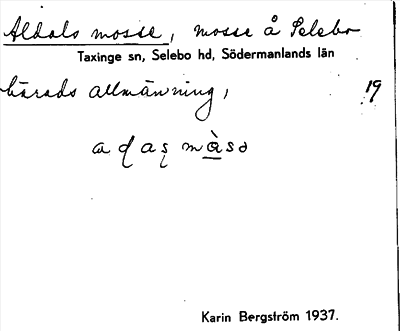 Aldals mosse, mosse å Selebo
Taxinge sn, Selebo hd, Södermanlands län
härads allmänning,
19
Karin Bergström 1937.